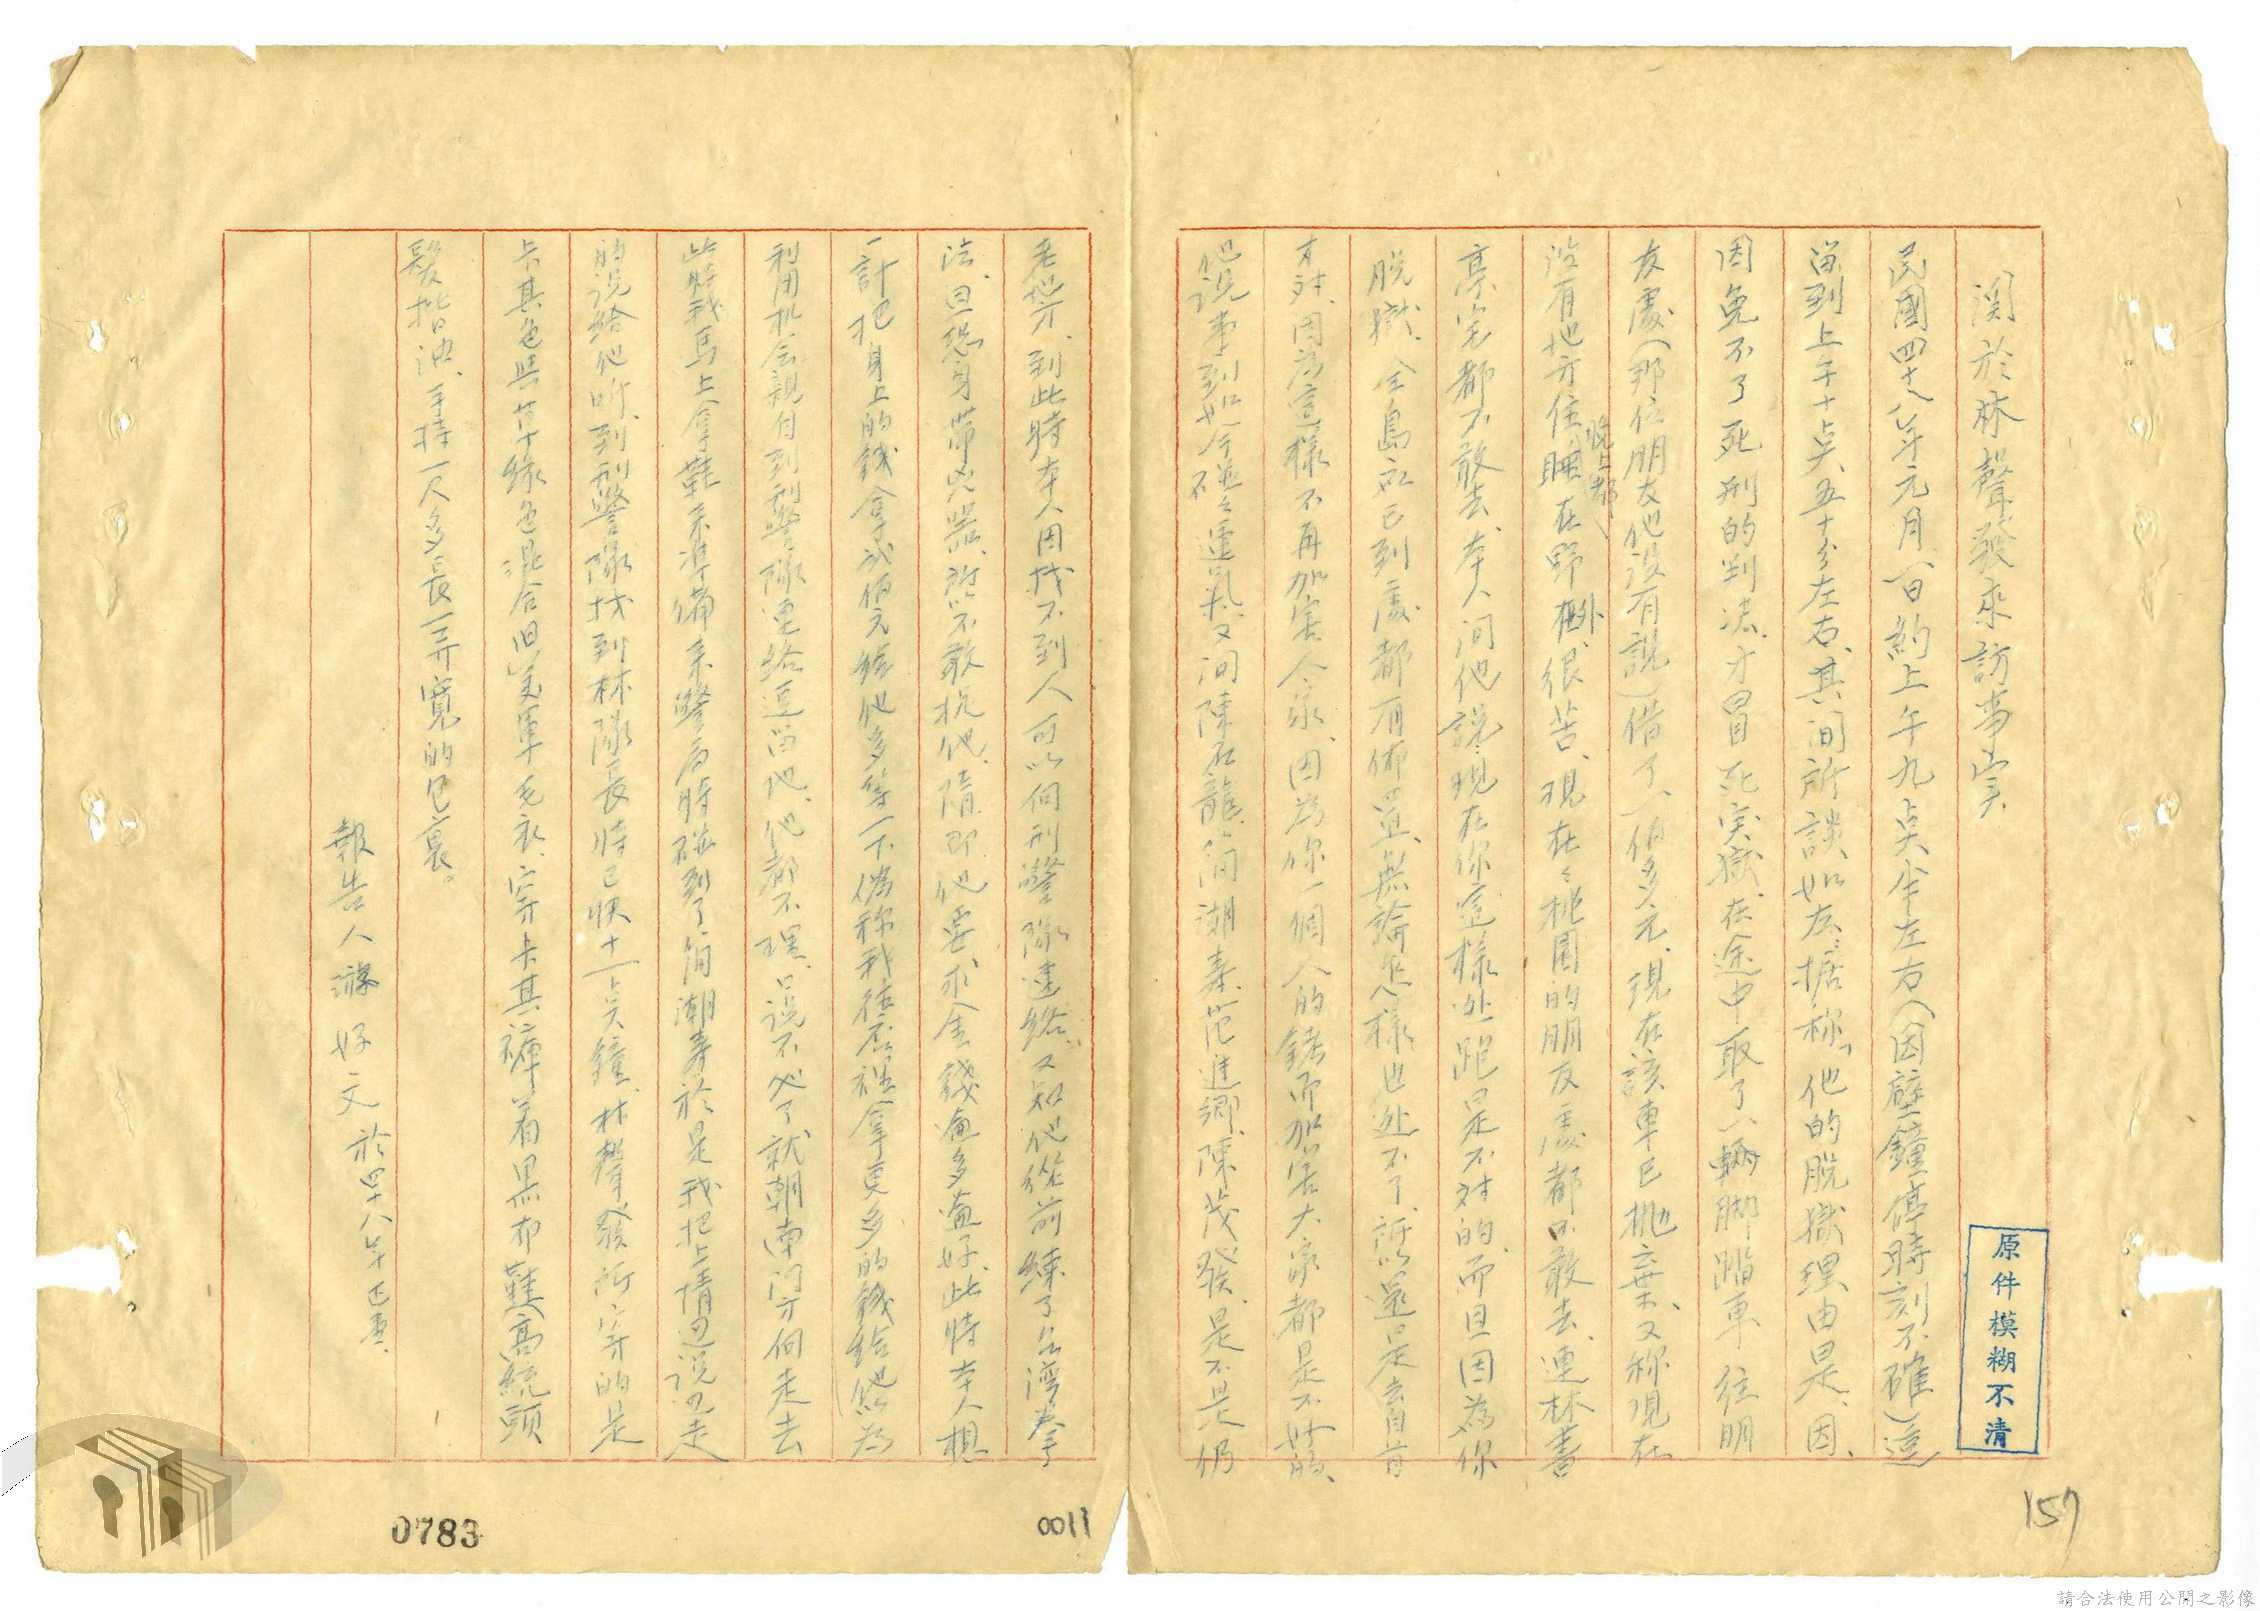 関於林聲發來訪事实
民國四十八年元月一日約上午九点半左右(因壁鐘停時刻不確)逗
留到上午十点五十分左右、其间所談如左、据称「他的脱獄理由是、因、
因免不了死刑的判决、才冒死突獄、在途中取了一輛脚踏車往朋
友處(那位朋友他没有説)借了一佰多元、現在該車已抛棄、又称現在
没有地方住、晚上都睏在野外、很苦、現在桃園的朋友處都不敢去、連林書
都不敢去、本人问他説、現在你這樣逃跑是不对的、而且因為你
脱獄、全島 已到處都有佈置、無論怎樣也逃不了、所以還是去自首
才对、因為這樣不再加害人家、因為你一個人的錯而加害大家都是不好的、
他説事到如今 碰々運氣、又问陳石龍、简潮寿、范進鄉、陳茂發、是不是仍
老地方、到此時本人因找不到人可以向刑警隊連絡、又知他從前練了台湾拳
法、且恐身帶凶器、所以不敢抗他、隨即他要求金錢愈多愈好、此時本人想
一計把身上的錢拿 佰元給他多等一下偽称我 拿更多的錢給他 為
利用机会親自到刑警隊連絡逗留他、他都不理、只说不必了就朝南门方向走去
此時我馬上拿鞋來準備來警局時碰到了简潮寿於是我把上情边说边走
的说給他听、到刑警隊找到林隊長時已快十一点鐘、林聲發所穿的是
卡其色與草綠色混合(旧)美軍毛衣、穿卡其褲、着黑布鞋(高統)頭
髮揩油、手持一尺多長一 寬的包裹。
報告人 游好文 於四十八年
原件模糊不清
157
0011
0783
請合法使用公開之影像